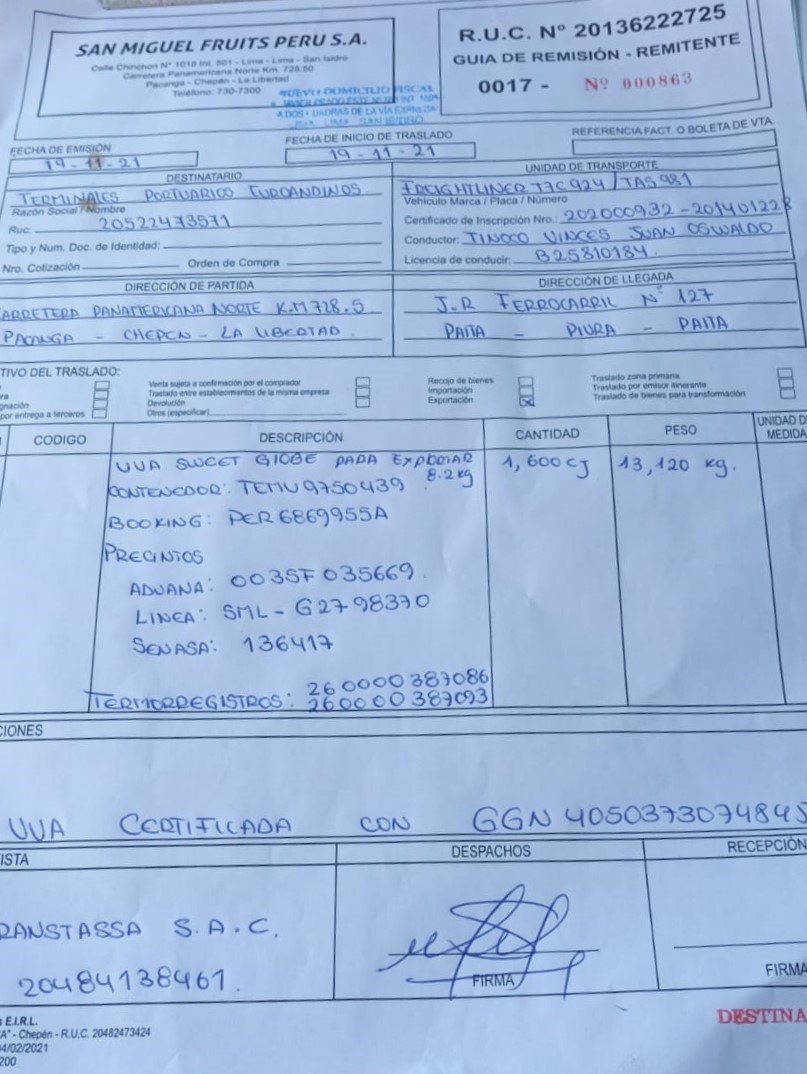 SAN MIGUEL FRUITS PERU S.A.
Calle Chinchon N° 1018 Int. 501 - Lima - Lima - San Isidro
Carretera Panamericana Norte Km. 728.50
Pacanga - Chepén - La Libertad
Teléfono: 730-7300
NUEVO DOMICILIO FISCAL
R.U.C. Nº 20136222725
GUIA DE REMISIÓN - REMITENTE
0017 - Nº 000863
FECHA DE EMISIÓN
19-11-21
FECHA DE INICIO DE TRASLADO
19-11-21
REFERENCIA FACT. O BOLETA DE VTA.
DESTINATARIO
TERMINALES PORTUARIOS EUROANDINOS
Razón Social / Nombre
Ruc: 20522473571
Tipo y Num. Doc. de Identidad:
Nro. Cotización Orden de Compra
UNIDAD DE TRANSPORTE
FREIGHTLINER T7C924/TAS981
Vehículo Marca / Placa / Número
Certificado de Inscripción Nro.: 202000932-201401228
Conductor: TINOCO VINCES JUAN OSWALDO
Licencia de conducir: B25810184
DIRECCIÓN DE PARTIDA
ARRETERA PANAMERICANA NORTE K.M 728.5
PACANGA - CHEPEN - LA LIBERTAD.
DIRECCIÓN DE LLEGADA
J.R FERROCARRIL N° 127
PAITA - PIURA - PAITA
TIVO DEL TRASLADO:
ra
gnación
por entrega a terceros
Venta sujeta a confirmación por el comprador
Traslado entre establecimientos de la misma empresa
Devolución
Otros (especificar)
Recojo de bienes
Importación
Exportación
Traslado zona primaria
Traslado por emisor itinerante
Traslado de bienes para transformación
CODIGO DESCRIPCIÓN CANTIDAD PESO UNIDAD D
MEDIDA
UVA SWEET GLOBE PARA EXPORTAR 1,600 CJ 13,120 kg.
8.2kg
CONTENEDOR: TEMU9750439
BOOKING: PER6869955A
PRECINTOS
ADUANA: 003SF035669.
LINEA: SML-G2798370
SENASA: 136417
260000387086
TERMORREGISTROS: 260000387093
CIONES
UVA CERTIFICADA CON GGN 4050373074845
ISTA
RANSTASSA S.A.C.
20484138461.
DESPACHOS
FIRMA
RECEPCIÓN
FIRMA
s E.I.R.L.
"A" - Chepén - R.U.C. 20482473424
04/02/2021
200
DESTINA